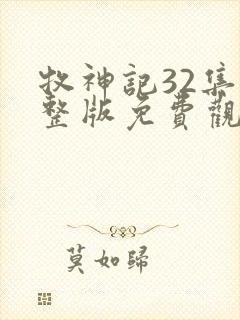 牧神記32集
整版免費觀
莫如歸